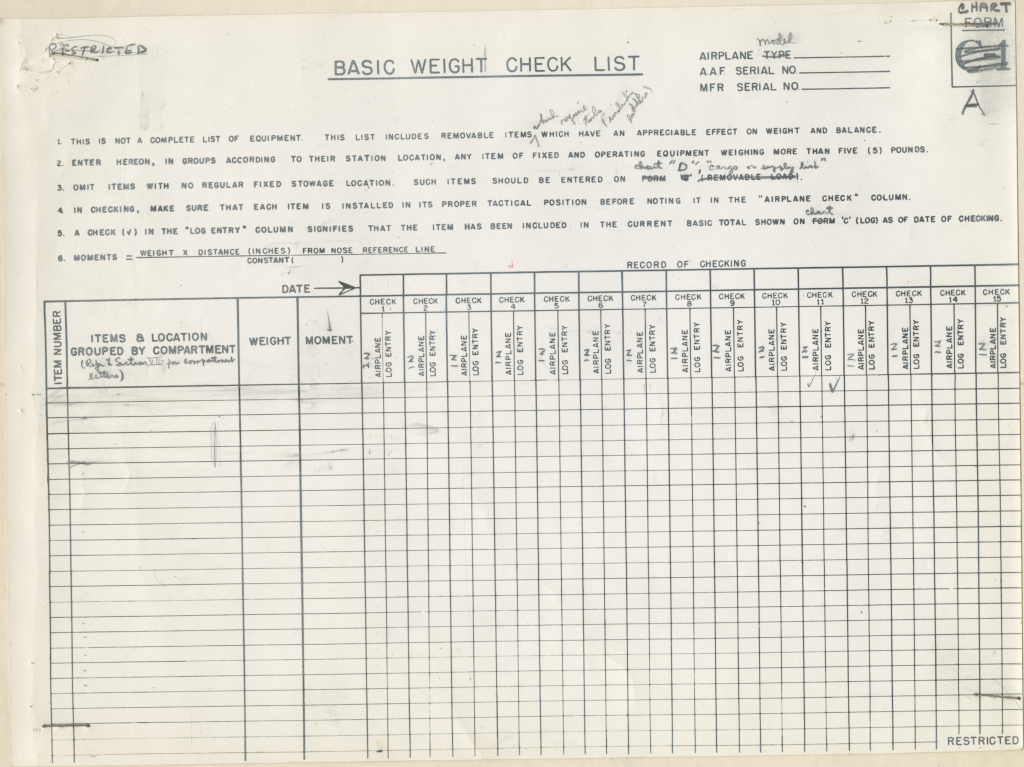 CHART
FORM
C-1
A
RESTRICTED
BASIC WEIGHT CHECK LIST
model
AIRPLANE TYPE
A.A.F. SERIAL NO.
MFR SERIAL NO.
which require tools
1. THIS IS NOT A COMPLETE LIST OF EQUIPMENT. THIS LIST INCLUDES REMOVABLE ITEMS, WHICH HAVE AN APPRECIABLE EFFECT ON WEIGHT AND BALANCE.
2. ENTER HEREON, IN GROUPS ACCORDING TO THEIR STATION LOCATION, ANY ITEM OF FIXED AND OPERATING EQUIPMENT WEIGHING MORE THAN FIVE (5) POUNDS.
chart "D", "cargo or supply list"
3. OMIT ITEMS WITH NO REGULAR FIXED STOWAGE LOCATION. SUCH ITEMS SHOULD BE ENTERED ON FORM (REMOVABLE LOAD).
4. IN CHECKING, MAKE SURE THAT EACH ITEM IS INSTALLED IN ITS PROPER TACTICAL POSITION BEFORE NOTING IT IN THE "AIRPLANE CHECK" COLUMN.
chart
5. A CHECK (√) IN THE "LOG ENTRY" COLUMN SIGNIFIES THAT THE ITEM HAS BEEN INCLUDED IN THE CURRENT BASIC TOTAL SHOWN ON FORM 'C' (LOG) AS OF DATE OF CHECKING.
6. MOMENTS = WEIGHT X DISTANCE (INCHES) FROM NOSE REFERENCE LINE
CONSTANT ( )
RECORD OF CHECKING
DATE
CHECK 1 CHECK 2 CHECK 3 CHECK 4 CHECK 5 CHECK 6 CHECK 7 CHECK 8 CHECK 9 CHECK 10 CHECK 11 CHECK 12 CHECK 13 CHECK 14 CHECK 15
ITEM NUMBER
ITEMS & LOCATION
GROUPED BY COMPARTMENT
(Refer to Section VII for compartment
letters)
WEIGHT
MOMENT
IN AIRPLANE LOG ENTRY IN AIRPLANE LOG ENTRY IN AIRPLANE LOG ENTRY IN AIRPLANE LOG ENTRY IN AIRPLANE LOG ENTRY IN AIRPLANE LOG ENTRY IN AIRPLANE LOG ENTRY IN AIRPLANE LOG ENTRY IN AIRPLANE LOG ENTRY IN AIRPLANE LOG ENTRY IN AIRPLANE LOG ENTRY IN AIRPLANE LOG ENTRY IN AIRPLANE LOG ENTRY IN AIRPLANE LOG ENTRY IN AIRPLANE LOG ENTRY
✓ ✓
RESTRICTED